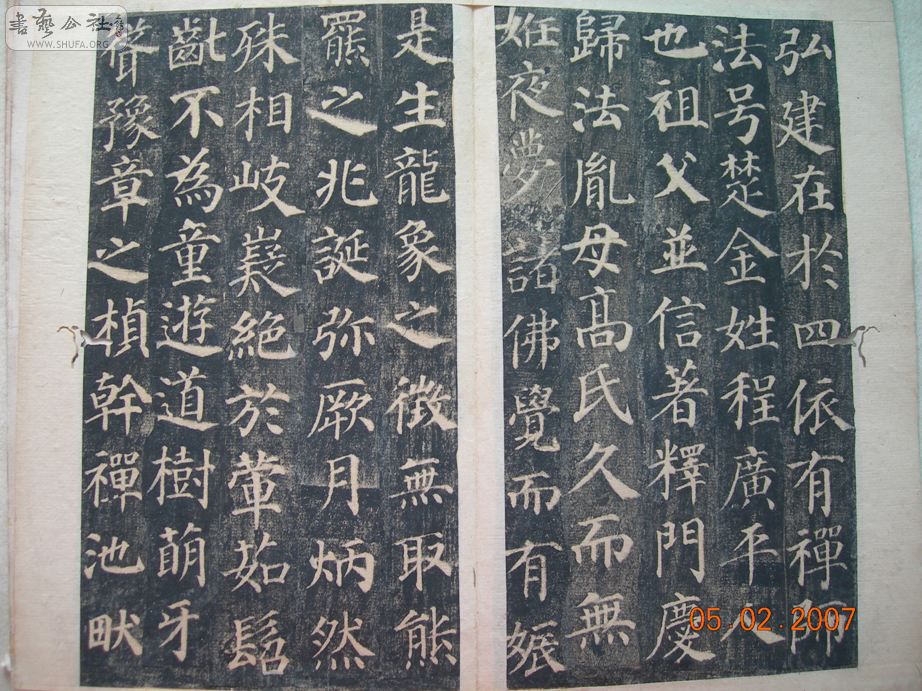 弘建在於四依有禪師
法号楚金姓程廣平人
也祖父並信著釋門慶
歸法胤母高氏久而無
姙夜夢諸佛覺而有娠
是生龍象之徵無取熊
羆之兆誕弥厥月炳然
殊相岐嶷絶於葷茹髫
齔不為童遊道樹萌牙
聳豫章之楨幹禪池畎
書藝公社
WWW.SHUFA.ORG
05.02.2007